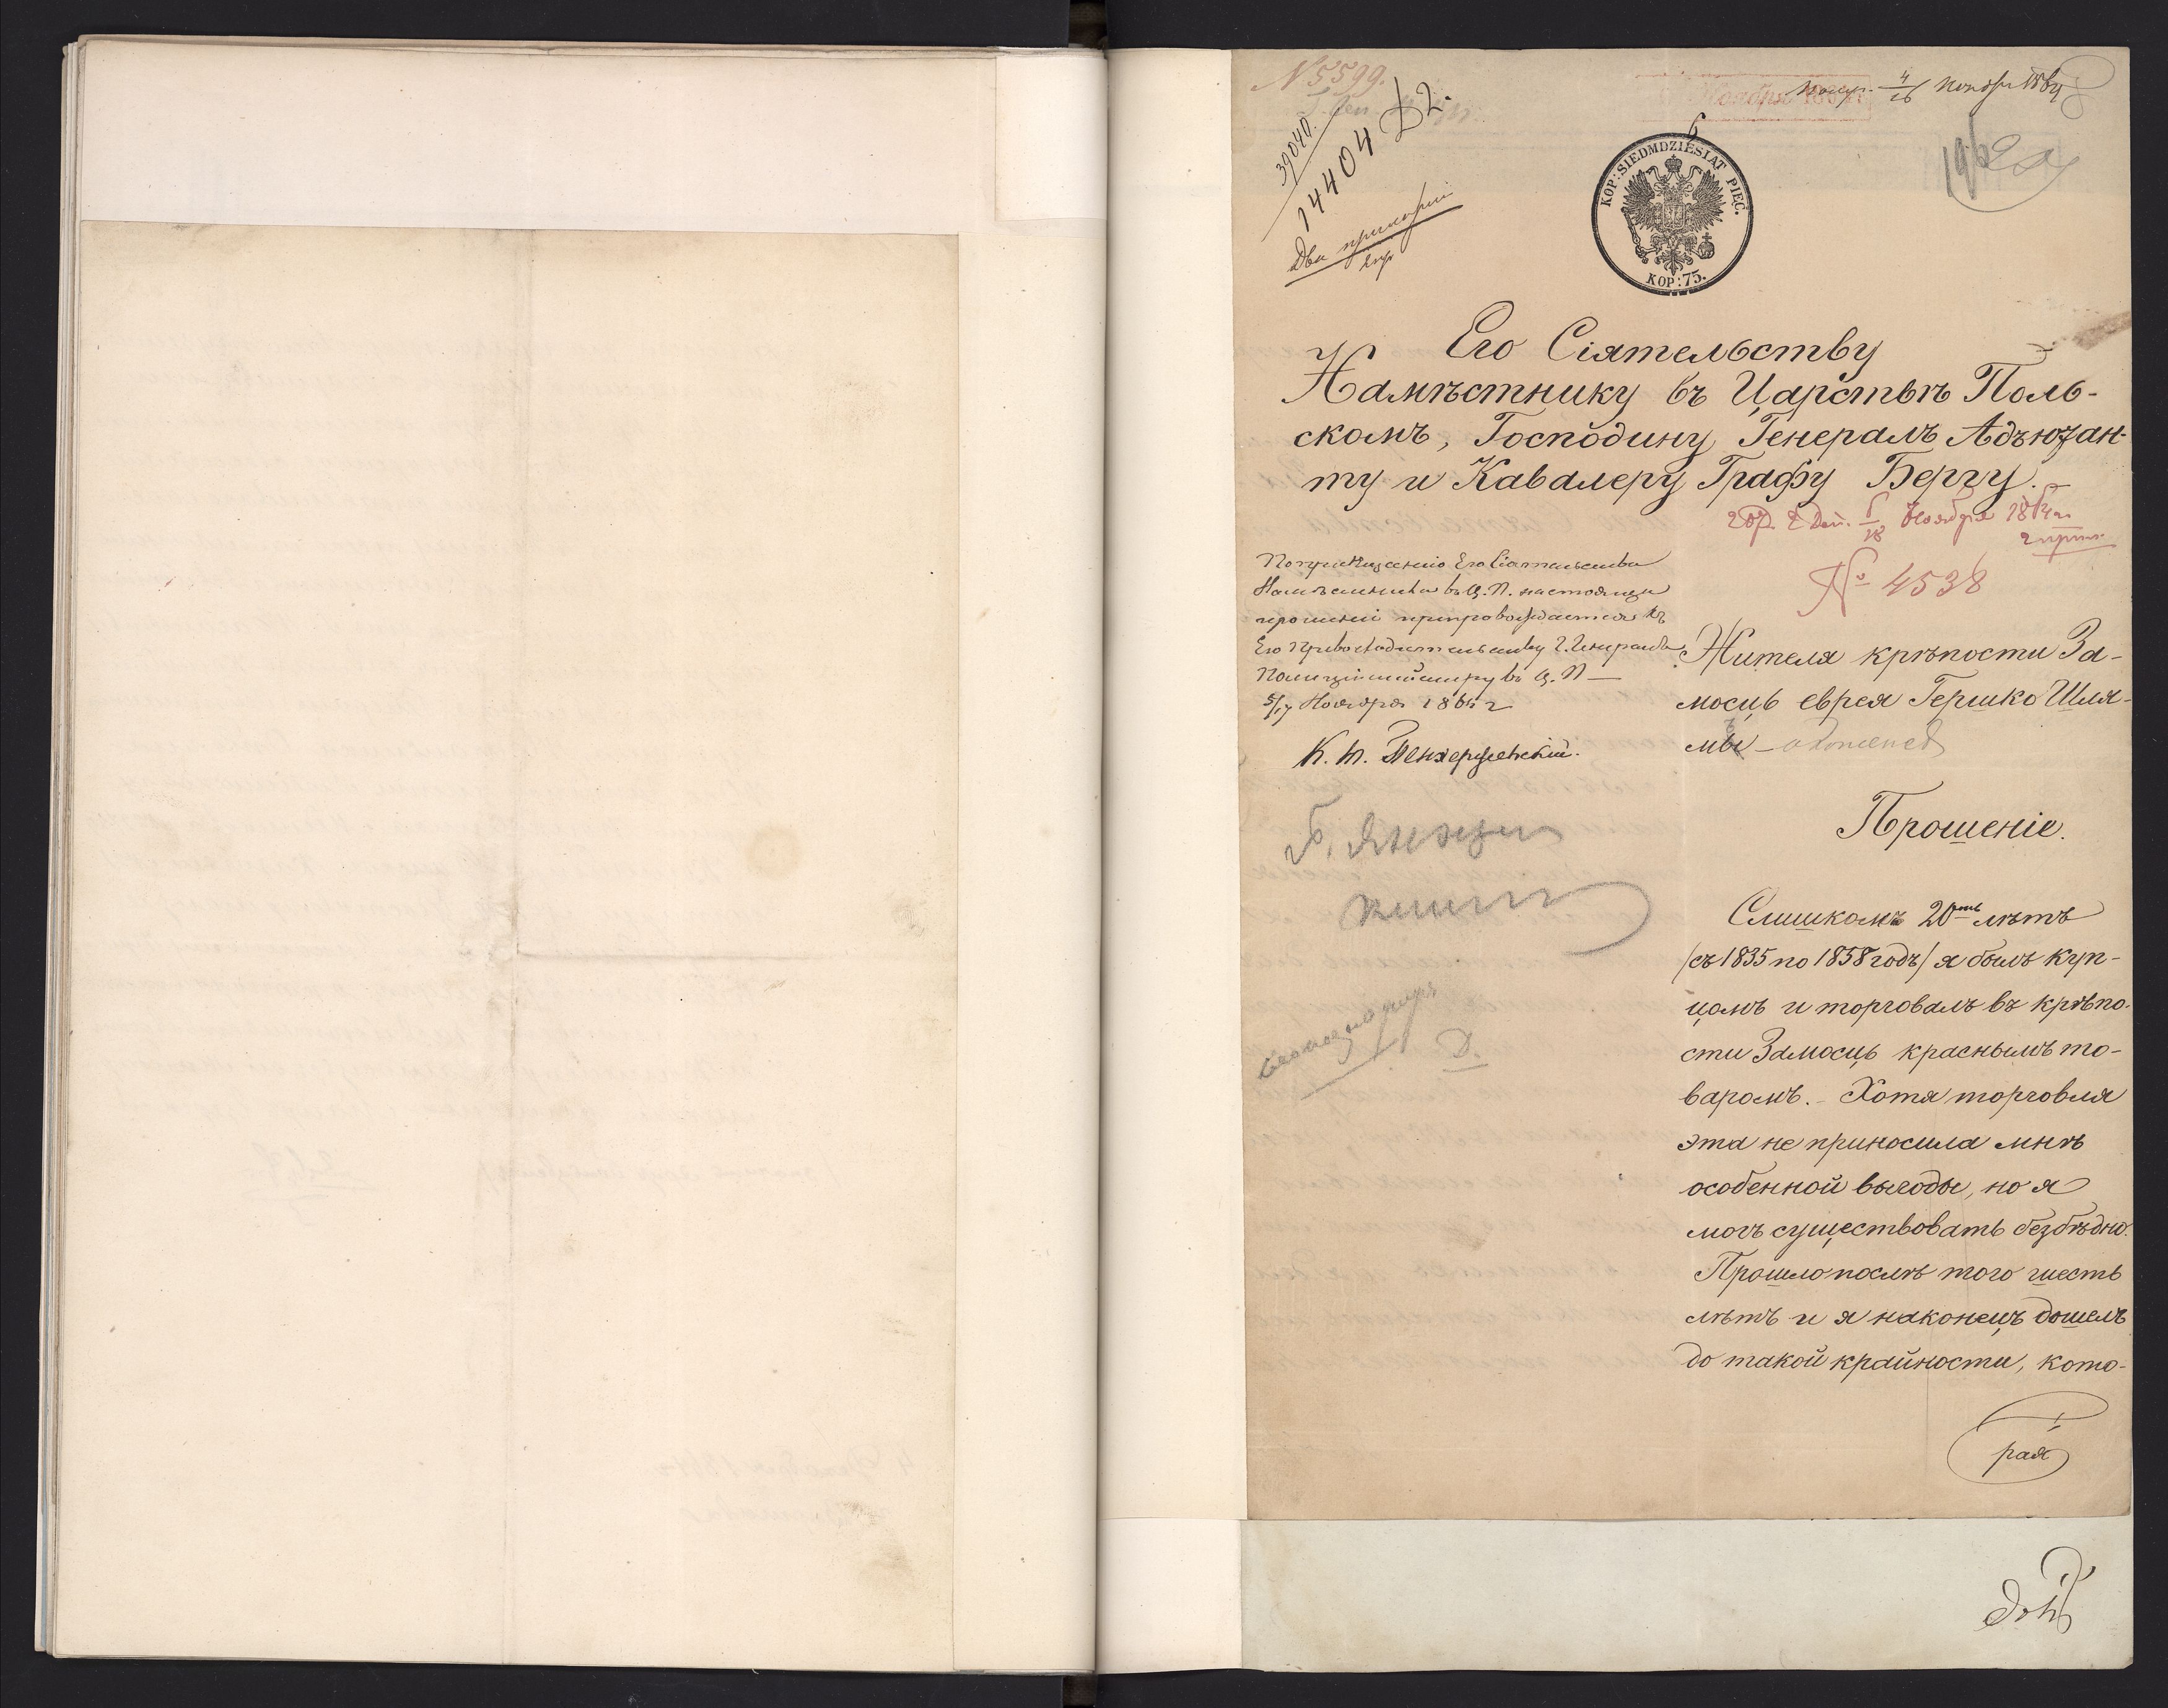 N 5599.
39040.
14404 D2.
Два
4/16 Ноября 1864
KOP: SIEDMDZIESIAT PIĘĆ.
KOP: 75.
Его Сіятельству
Намѣстнику въ Царствѣ Поль-
скомъ, Господину Генералъ Адъютан-
ту и Кавалеру Графу Бергу.
Ноября 1864 г.
№ 4538
По приказанію Его Сіятельства
Намѣстника въ Ц. П. настоящее
прошеніе препровождается къ
Его Превосходительству Г. Генералъ
Полиціймейстеру въ Ц. П —
5/17 Ноября 1864 г
Жителя крѣпости За-
мосць еврея Гершко Шля-
мы
Прошеніе.
Слишкомъ 20ть лѣтъ
/съ 1835 по 1858 годъ/ я былъ куп-
цомъ и торговалъ въ крѣпо-
сти Замосць краснымъ то-
варомъ. - Хотя торговля
эта не приносила мнѣ
особенной выгоды, но я
могъ существовать безбѣдно.
Прошло послѣ того шесть
лѣтъ и я наконецъ дошелъ
до такой крайности, кото-
рая
D.